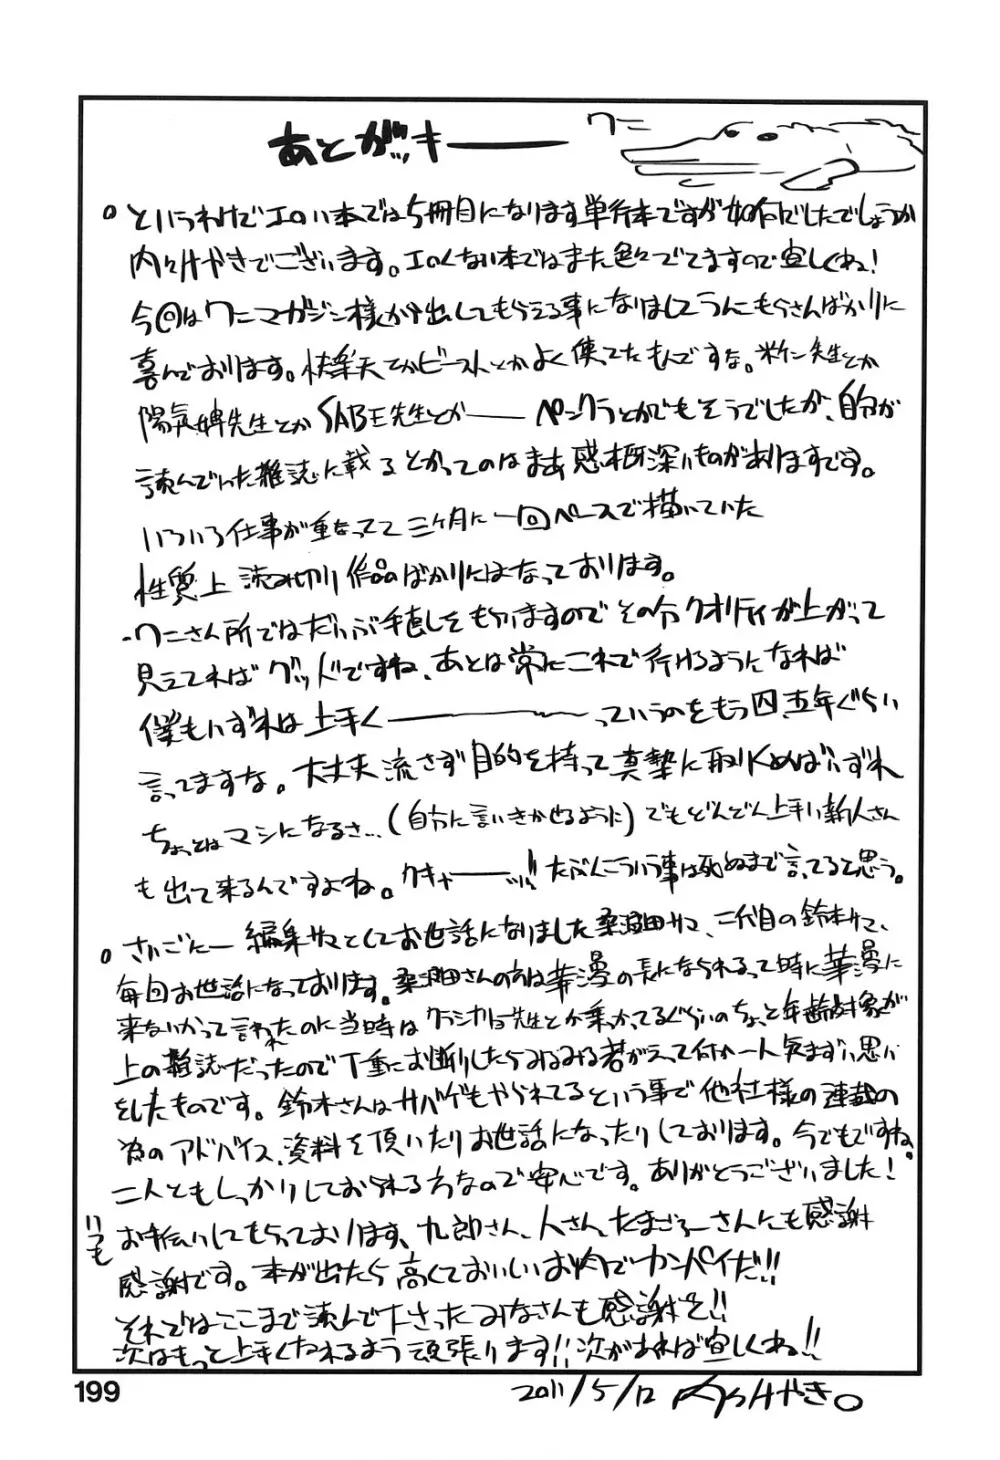 あとがッキー
ワニ
というわけでエロい本では5冊目になります単行本ですが如何でしたでしょうか
内々けやきでございます。エロくない本ではまた色々でてますので宜しくね!
今回はワニマガジン様から出してもらえる事になりましてうんにもうさんばかりに
喜んでおります。快楽天とかビーストとかよく使ってたもんですな。米倉先生とか
陽気婢先生とかSABE先生とかー ペンクラとかでもそうでしたが、自分が
読んでいた雑誌に載るとかってのはまあ感慨深いものがありますです。
いろいろ仕事が重なってて三ヶ月に一回ペースで描いていた
性質上 読み切り作品ばかりにはなっております。
・ワニさん所ではだいぶ手直しをもらいますのでその分クオリティが上がって
見えてればグッドですね、あとは常にこれで行けるようになれば
僕もいずれは上手くーーっていうのをもう四、五年ぐらい
言ってますな。大丈夫 流さず目的を持って真摯に取りくめばいずれ
ちょっとはマシになるさ…(自分に言いきかせるように)でもどんどん上手い新人さん
も出て来るんですよね。クキャーーッ!! たぶんこういう事は死ぬまで言ってると思う。
さいごにー 編集サマとしてお世話になりました桑沼田サマ、二代目の鈴木サマ、
毎回お世話になっております。桑沼田さんの方は華漫の長になられるって時に華漫に
来ないかって言われたのに当時はクラシカリョ先生とか乗ってるぐらいのちょっと年齢対象が
上の雑誌だったので丁重にお断りしたらみるみる若がえって何か一人気まずい思い
をしたものです。鈴木さんはサバゲもやられてるという事で他社様の連載の
為のアドバイス、資料を頂いたりお世話になったりしております。今でもですね。
二人ともしっかりしておられる方なので安心です。ありがとうございました!
いつも
お手伝いしてもらっております、九郎さん、人さん、たまごろーさんにも感謝
感謝です。本が出たら高くておいしいお肉でカンパイだ!!
それではここまで読んで下さったみなさんも感謝を!!
次はもっと上手くなれるよう頑張ります!!次があれば宜しくね!!
2011/5/12 内々けやき。
199